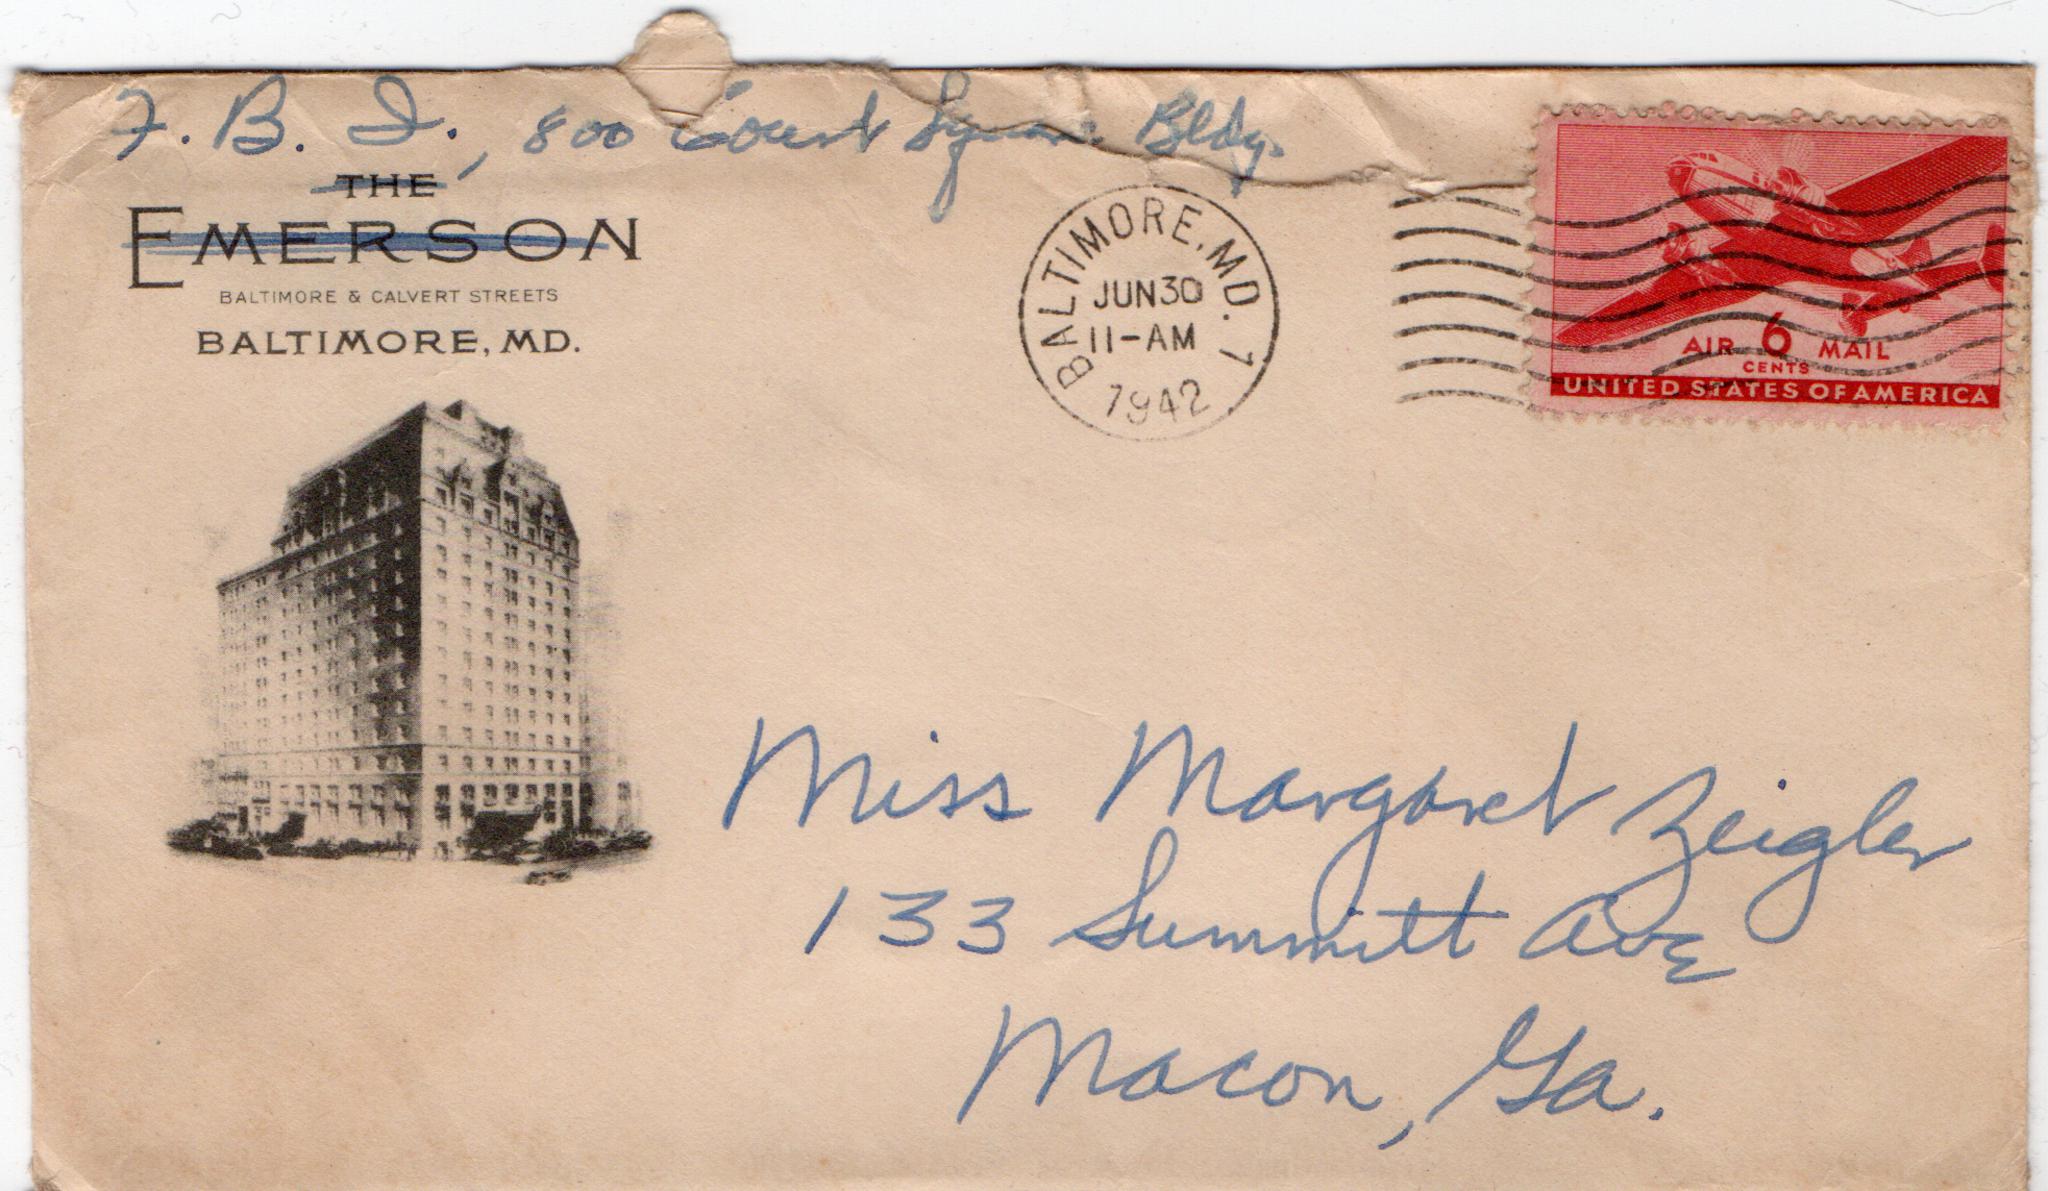 F. B. I., 800 Court Square Bldg.
THE
EMERSON
BALTIMORE & CALVERT STREETS
BALTIMORE, MD.
BALTIMORE, MD. 1
JUN 30
11-AM
1942
AIR 6 MAIL
CENTS
UNITED STATES OF AMERICA
Miss Margaret Zeigler
133 Summitt Ave
Macon, Ga.